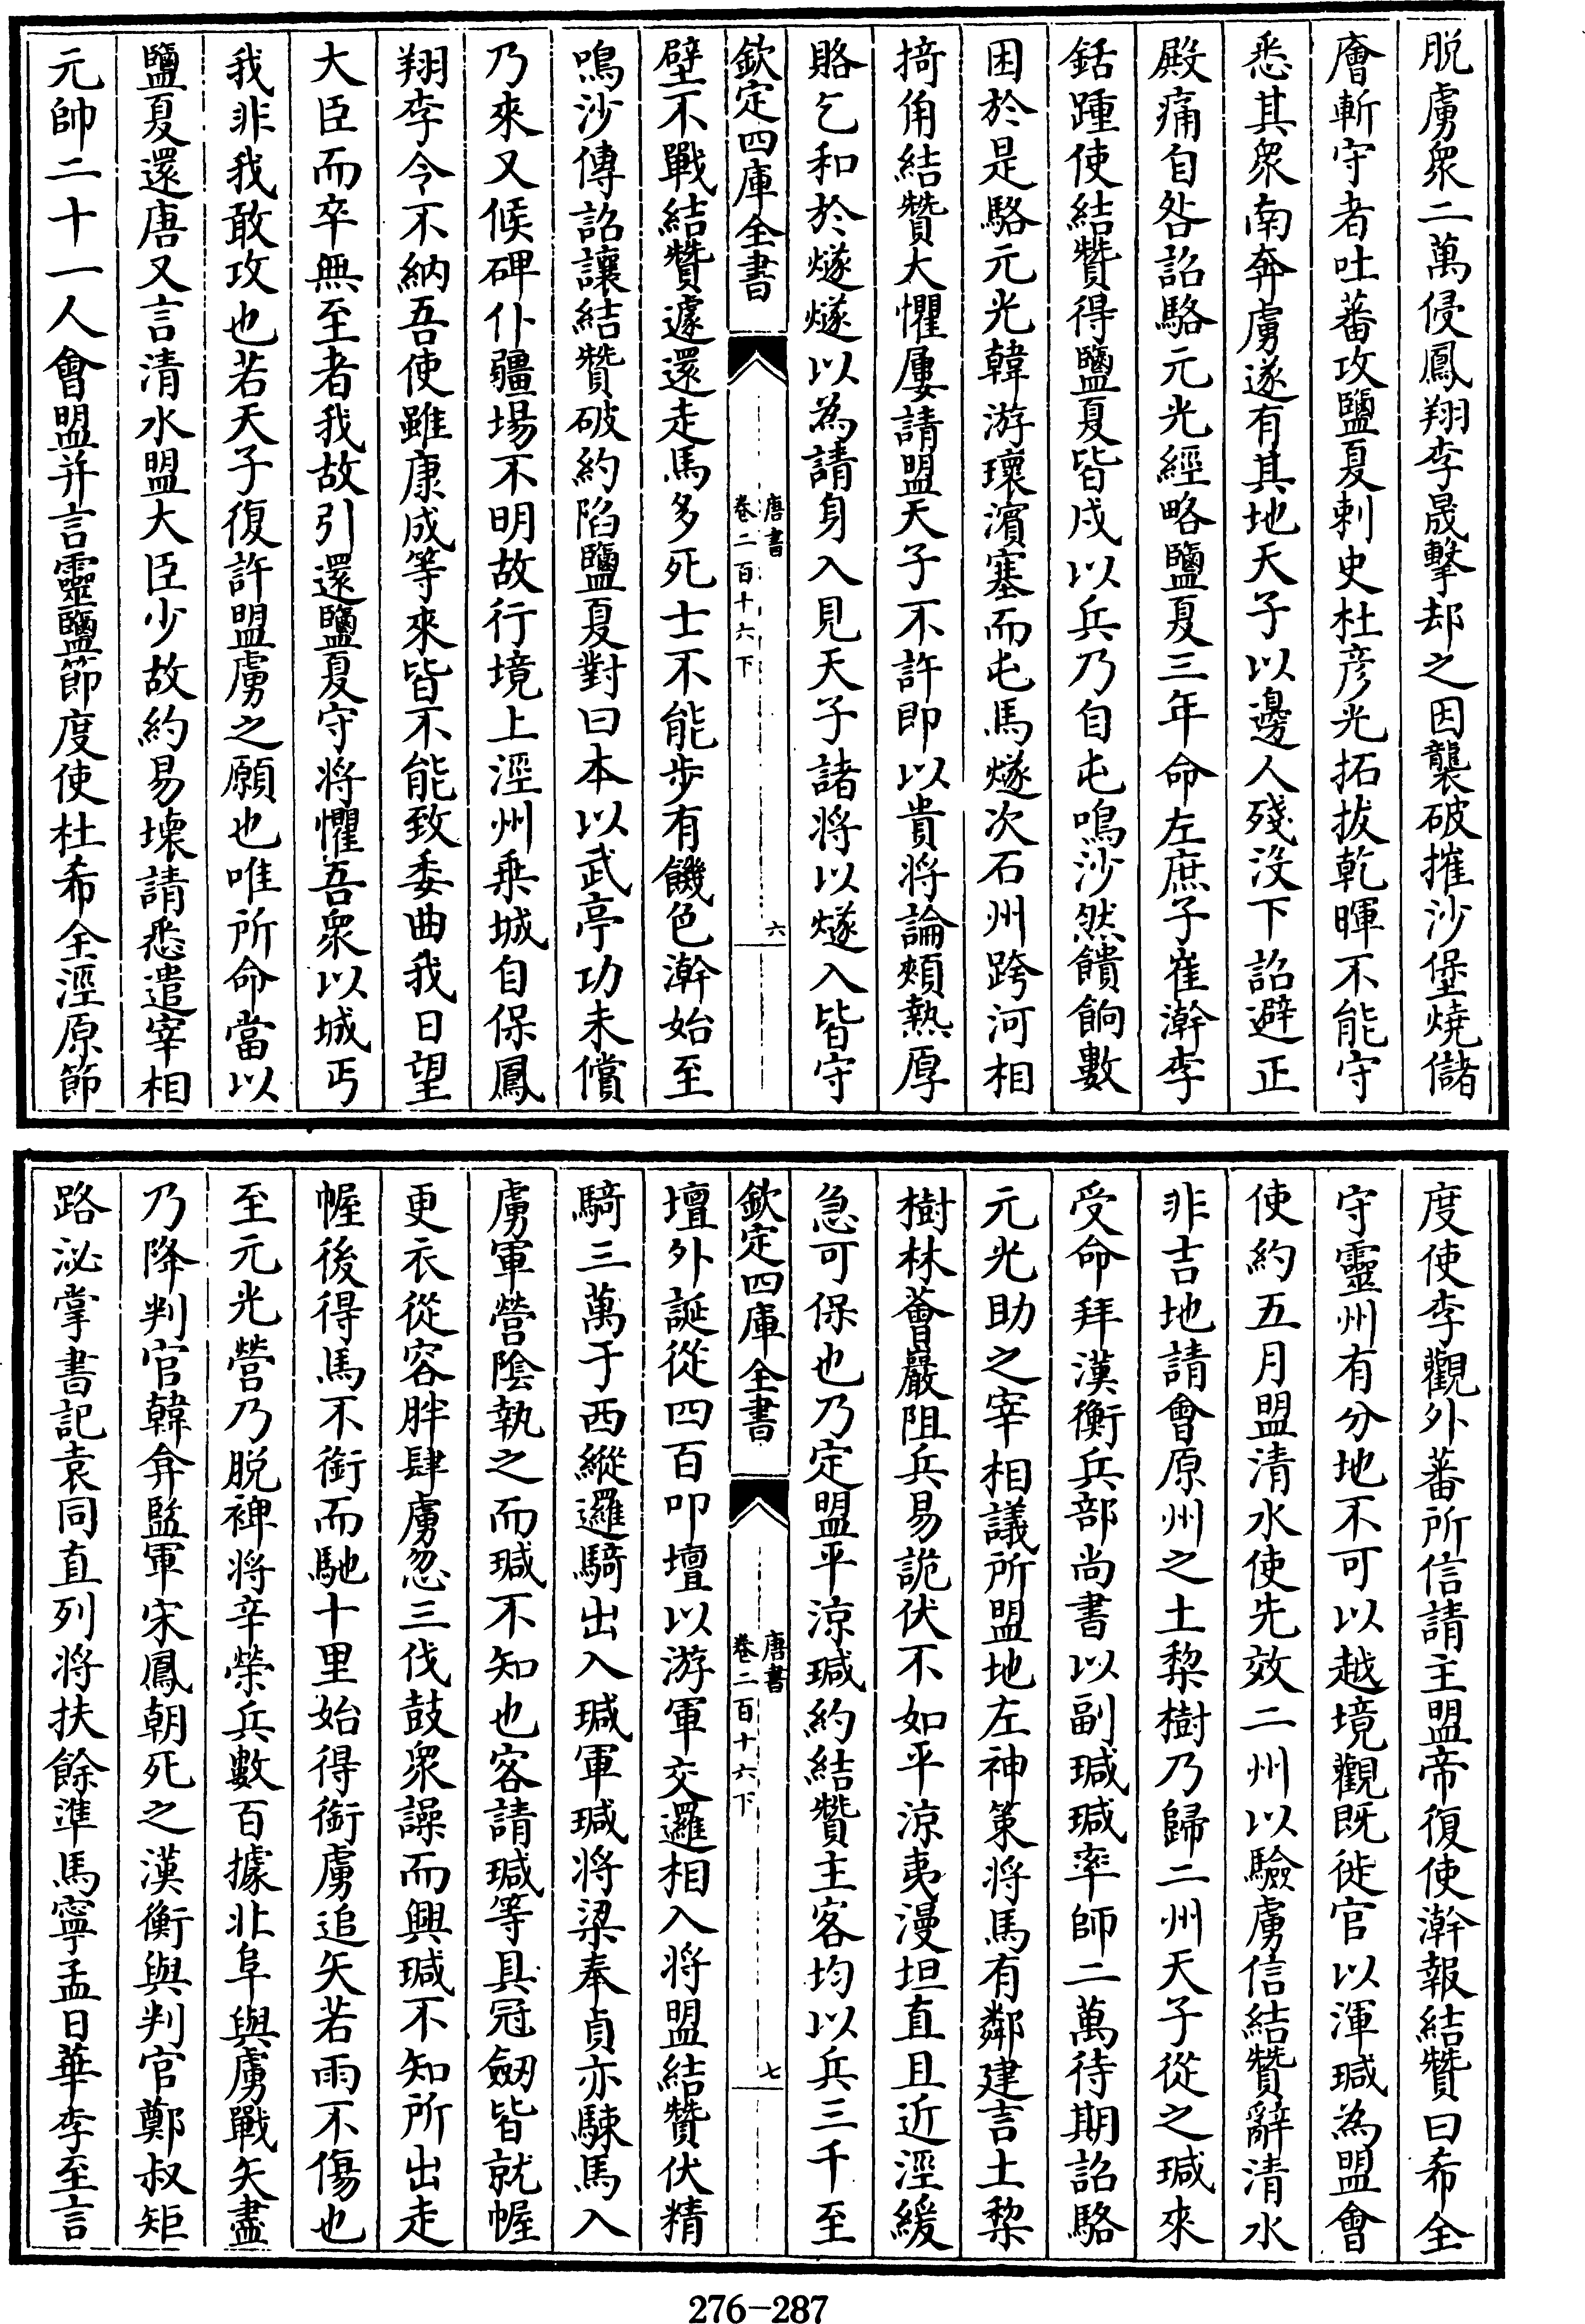 脱虜衆二萬侵鳳翔李晟擊却之因襲破摧沙堡燒儲
廥斬守者吐蕃攻鹽夏刺史杜彦光拓拔乾暉不能守
悉其衆南奔虜遂有其地天子以邊人殘沒下詔避正
殿痛自咎詔駱元光經略鹽夏三年命左庶子崔澣李
銛踵使結贊得鹽夏皆戍以兵乃自屯鳴沙然饋餉數
困於是駱元光韓游瓌濱塞而屯馬燧次石州跨河相
掎角結贊大懼屢請盟天子不許即以貴將論頰熱厚
賂乞和於燧燧以為請身入見天子諸將以燧入皆守
欽定四庫全書
唐書
卷二百十六下
六
壁不戰結贊遽還走馬多死士不能步有饑色澣始至
鳴沙傳詔讓結贊破約陷鹽夏對曰本以武亭功未償
乃來又候碑仆疆場不明故行境上涇州乗城自保鳳
翔李令不納吾使雖康成等來皆不能致委曲我日望
大臣而卒無至者我故引還鹽夏守將懼吾衆以城丐
我非我敢攻也若天子復許盟虜之願也唯所命當以
鹽夏還唐又言清水盟大臣少故約易壊請悉遣宰相
元帥二十一人會盟并言靈鹽節度使杜希全涇原節
度使李觀外蕃所信請主盟帝復使澣報結贊曰希全
守靈州有分地不可以越境觀既徙官以渾瑊為盟會
使約五月盟清水使先效二州以驗虜信結贊辭清水
非吉地請會原州之土棃樹乃歸二州天子從之瑊來
受命拜漢衡兵部尚書以副瑊瑊率師二萬待期詔駱
元光助之宰相議所盟地左神策將馬有鄰建言土棃
樹林薈巖阻兵易詭伏不如平涼夷漫坦直且近涇緩
急可保也乃定盟平涼瑊約結贊主客均以兵三千至
欽定四庫全書
唐書
卷二百十六下
七
壇外誕從四百叩壇以游軍交邏相入將盟結贊伏精
騎三萬于西縱邏騎出入瑊軍瑊將梁奉貞亦駷馬入
虜軍營陰執之而瑊不知也客請瑊等具冠劒皆就幄
更衣從容胖肆虜忽三伐鼓衆譟而興瑊不知所出走
幄後得馬不銜而馳十里始得銜虜追矢若雨不傷也
至元光營乃脱裨將辛榮兵數百據北阜與虜戰矢盡
乃降判官韓弇監軍宋鳳朝死之漢衡與判官鄭叔矩
路泌掌書記袁同直列將扶餘準馬寧孟日華李至言
276-287